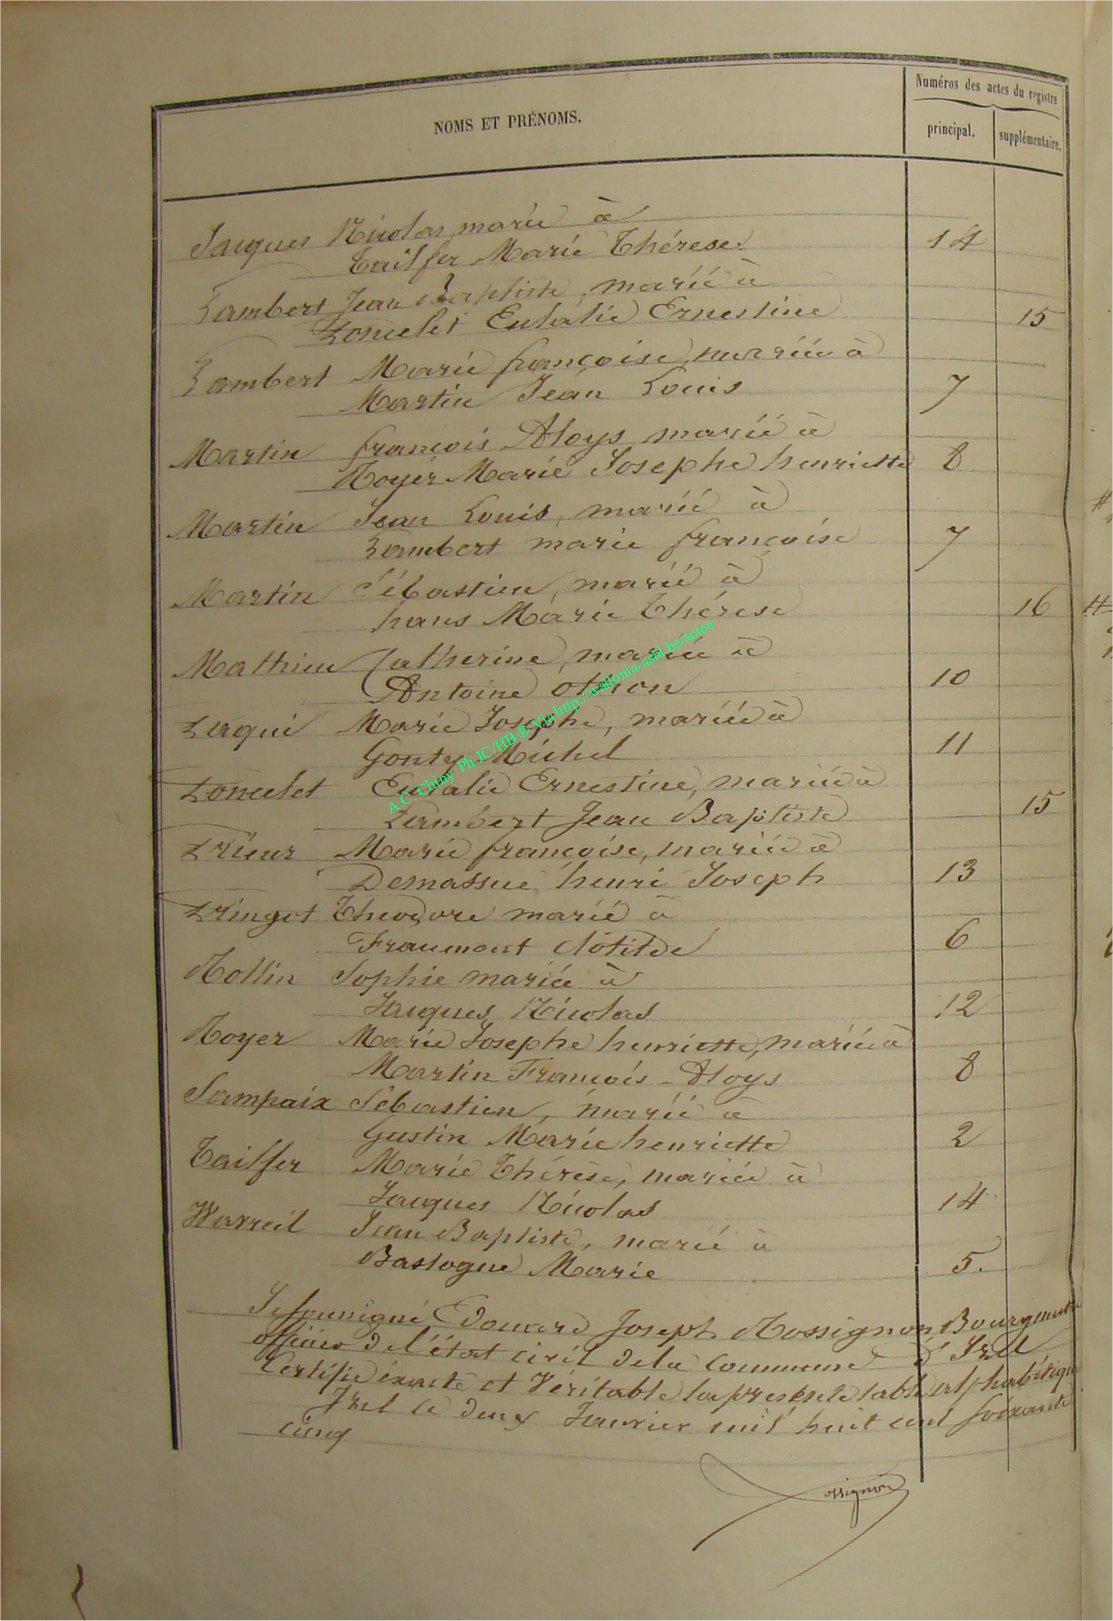 Numéros des actes du registre
NOMS ET PRÉNOMS.
principal.
supplémentaire.
Jacques Nicolas marié à
Tailfer Marie Thérese. 14
Lambert Jean Baptiste, marié à
Poncelet Eulalie Ernestine 15
Lambert Marie françoise, mariée à
Martin Jean Louis 7
Martin françois Aloys marié à
Royer Marie Josephe henriette 8
Martin Jean Louis, marié à
Lambert marie françoise 7
Martin Sébastien, marié à
hans Marie Thérese 16
Mathieu Catherine, mariée à
Antoine 10
Marie Josephe, mariée à
Michel 11
Poncelet Eulalie Ernestine, mariée à
Lambert Jean Baptiste 15
Marie françoise, mariée à
Demassue henri Joseph 13
Pringot Theodore marié à
Fraumont Clotilde 6
Rollin Sophie mariée à
Jacques Nicolas 12
Royer Marie Josephe henriette, mariée à
Martin François-Aloys 8
Sampaix Sébastien, marié à
Gustin Marie henriette 2
Tailfer Marie Thérèse, mariée à
Jacques Nicolas 14
Jean Baptiste, marié à
Bastogne Marie 5.
Le soussigné Edouard Joseph Rossignon Bourgmestre
officier de l'état civil de la commune d'Izel
Certifie exacte et Véritable la présente table alphabétique
Izel le deux Janvier mil huit cent soixante
cinq
Rossignon
A.C. Chiny Ph JC/HB @ Via http://wallonia-asbl.be/actes